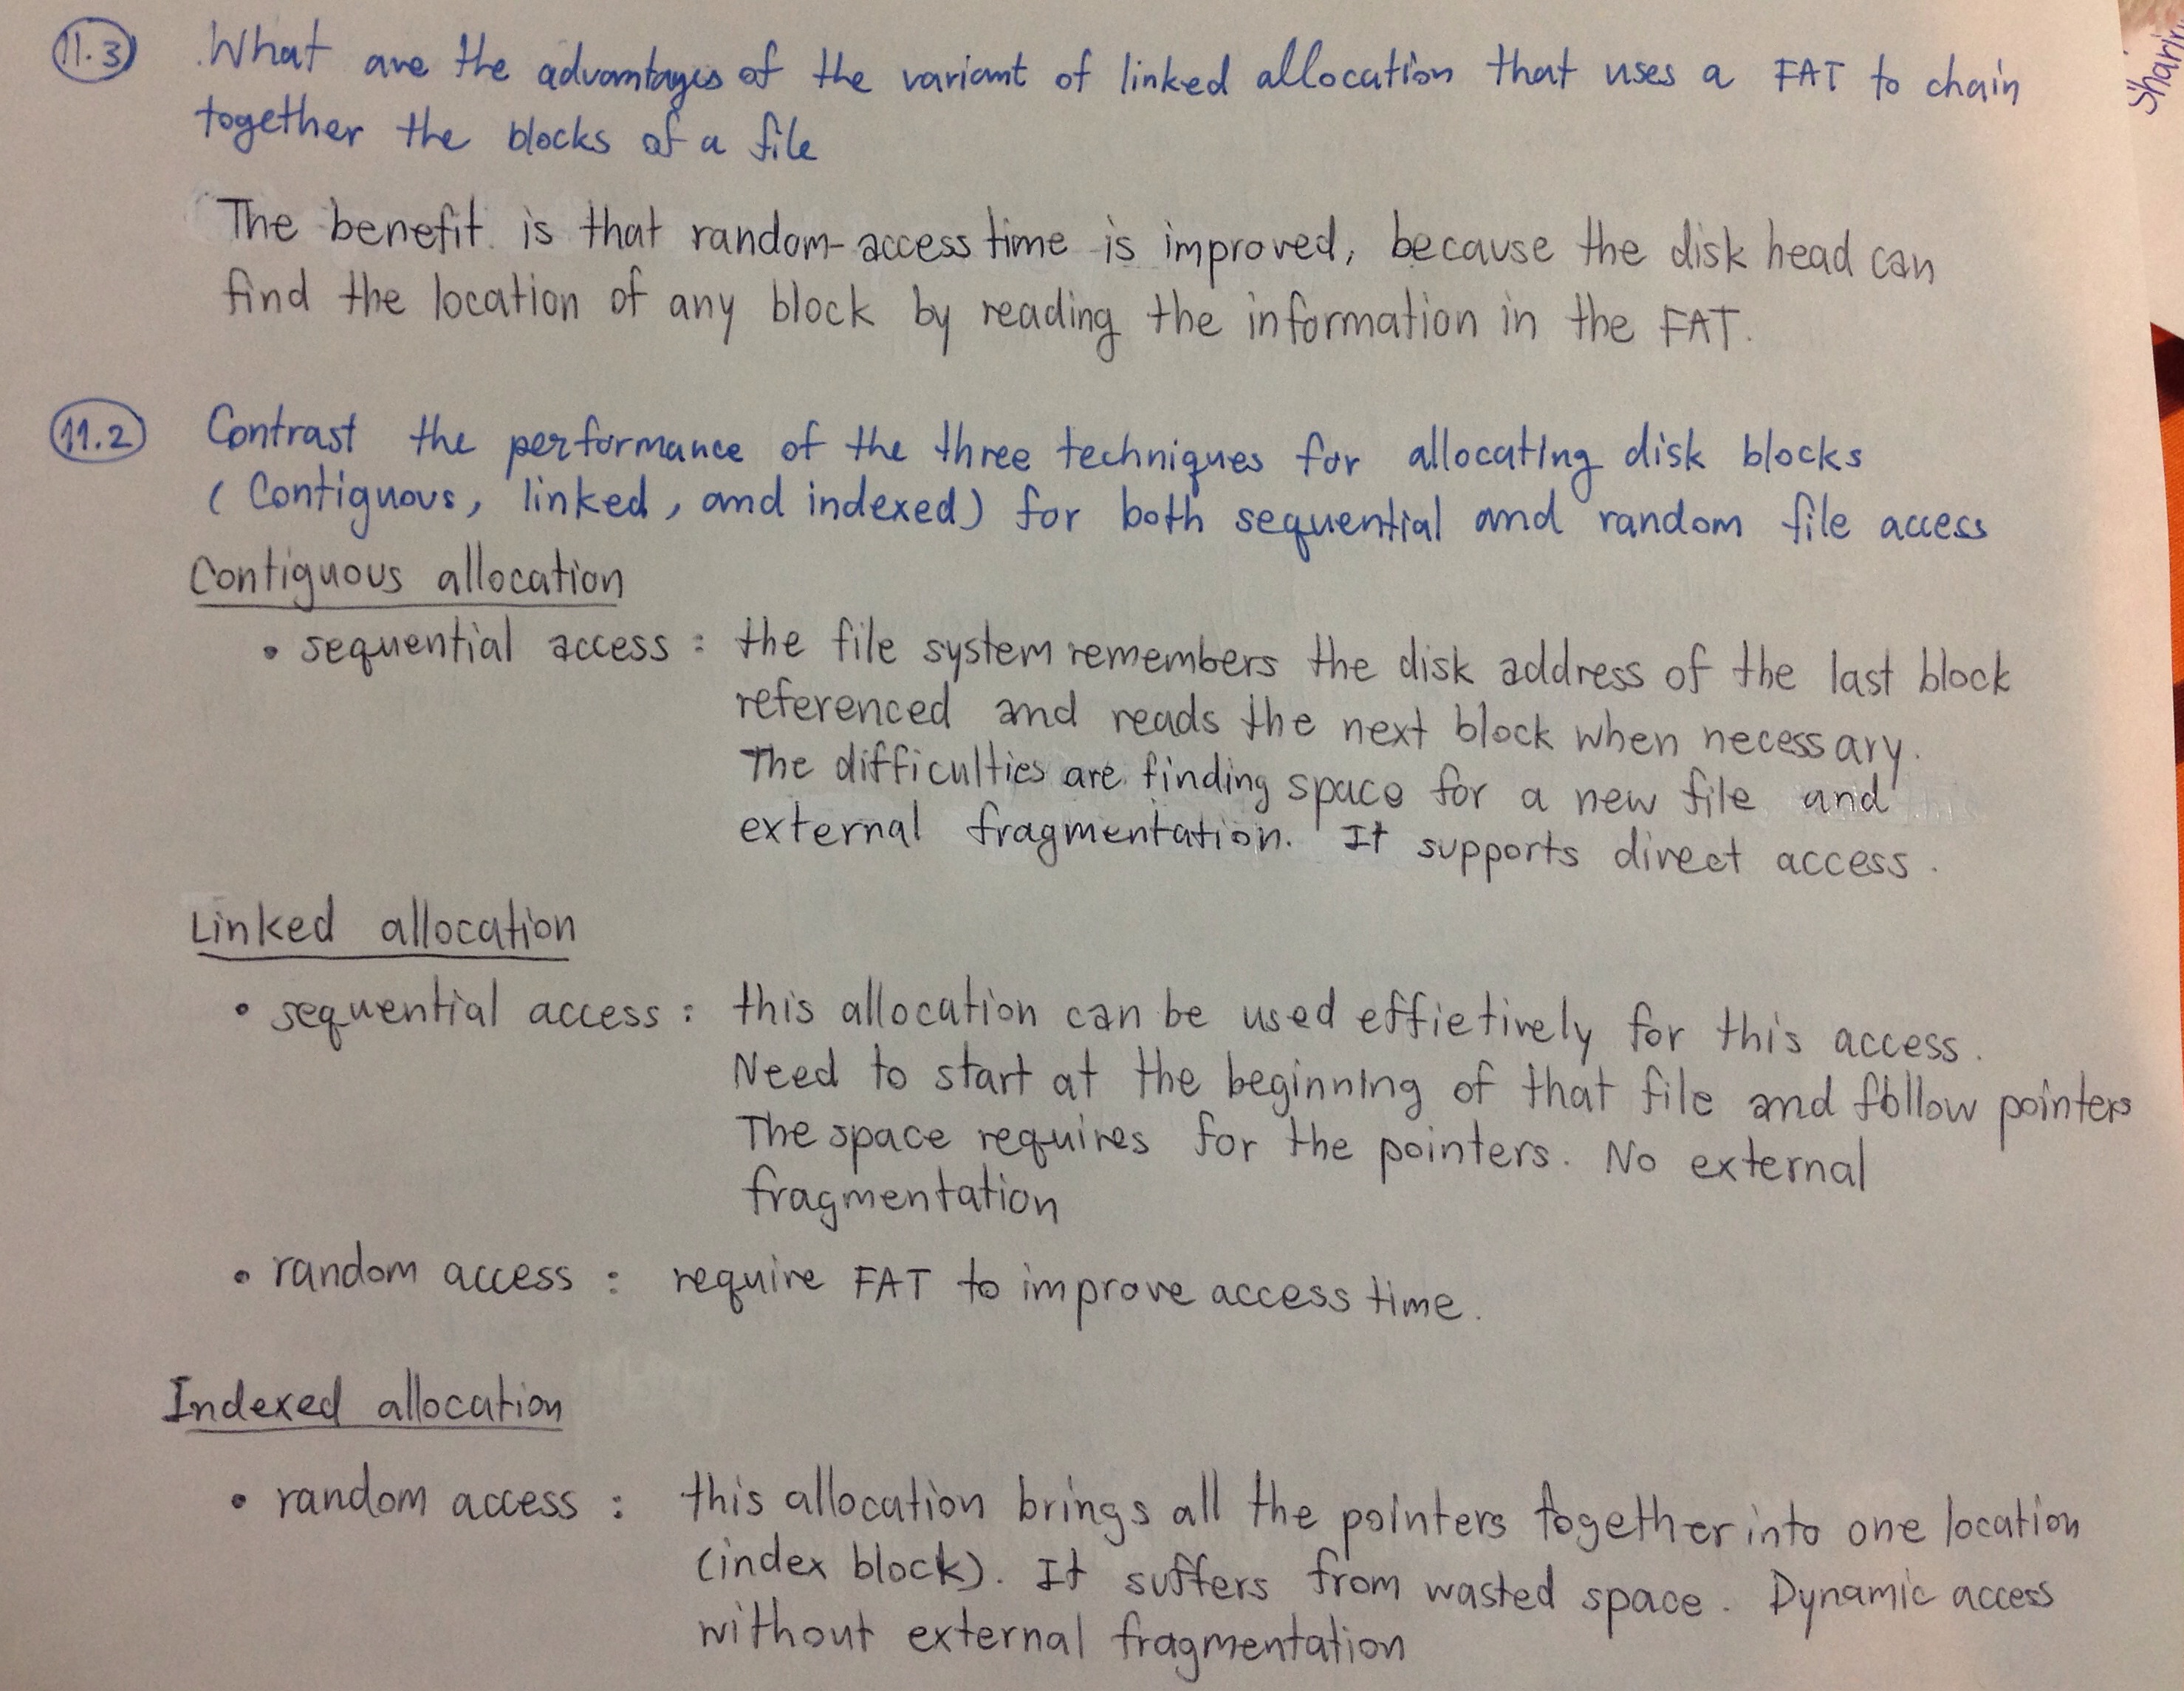 11.3 What are the advantages of the variant of linked allocation that uses a FAT to chain
together the blocks of a file
The benefit is that random-access time is improved, because the disk head can
find the location of any block by reading the information in the FAT.
11.2 Contrast the performance of the three techniques for allocating disk blocks
(Contiguous, linked, and indexed) for both sequential and random file access
Contiguous allocation
• sequential access : the file system remembers the disk address of the last block
referenced and reads the next block when necessary.
The difficulties are finding space for a new file and
external fragmentation. It supports direct access.
Linked allocation
• sequential access : this allocation can be used effietively for this access.
Need to start at the beginning of that file and follow pointers
The space requires for the pointers. No external
fragmentation
• random access : require FAT to improve access time.
Indexed allocation
• random access : this allocation brings all the pointers together into one location
(index block). It suffers from wasted space. Dynamic access
without external fragmentation